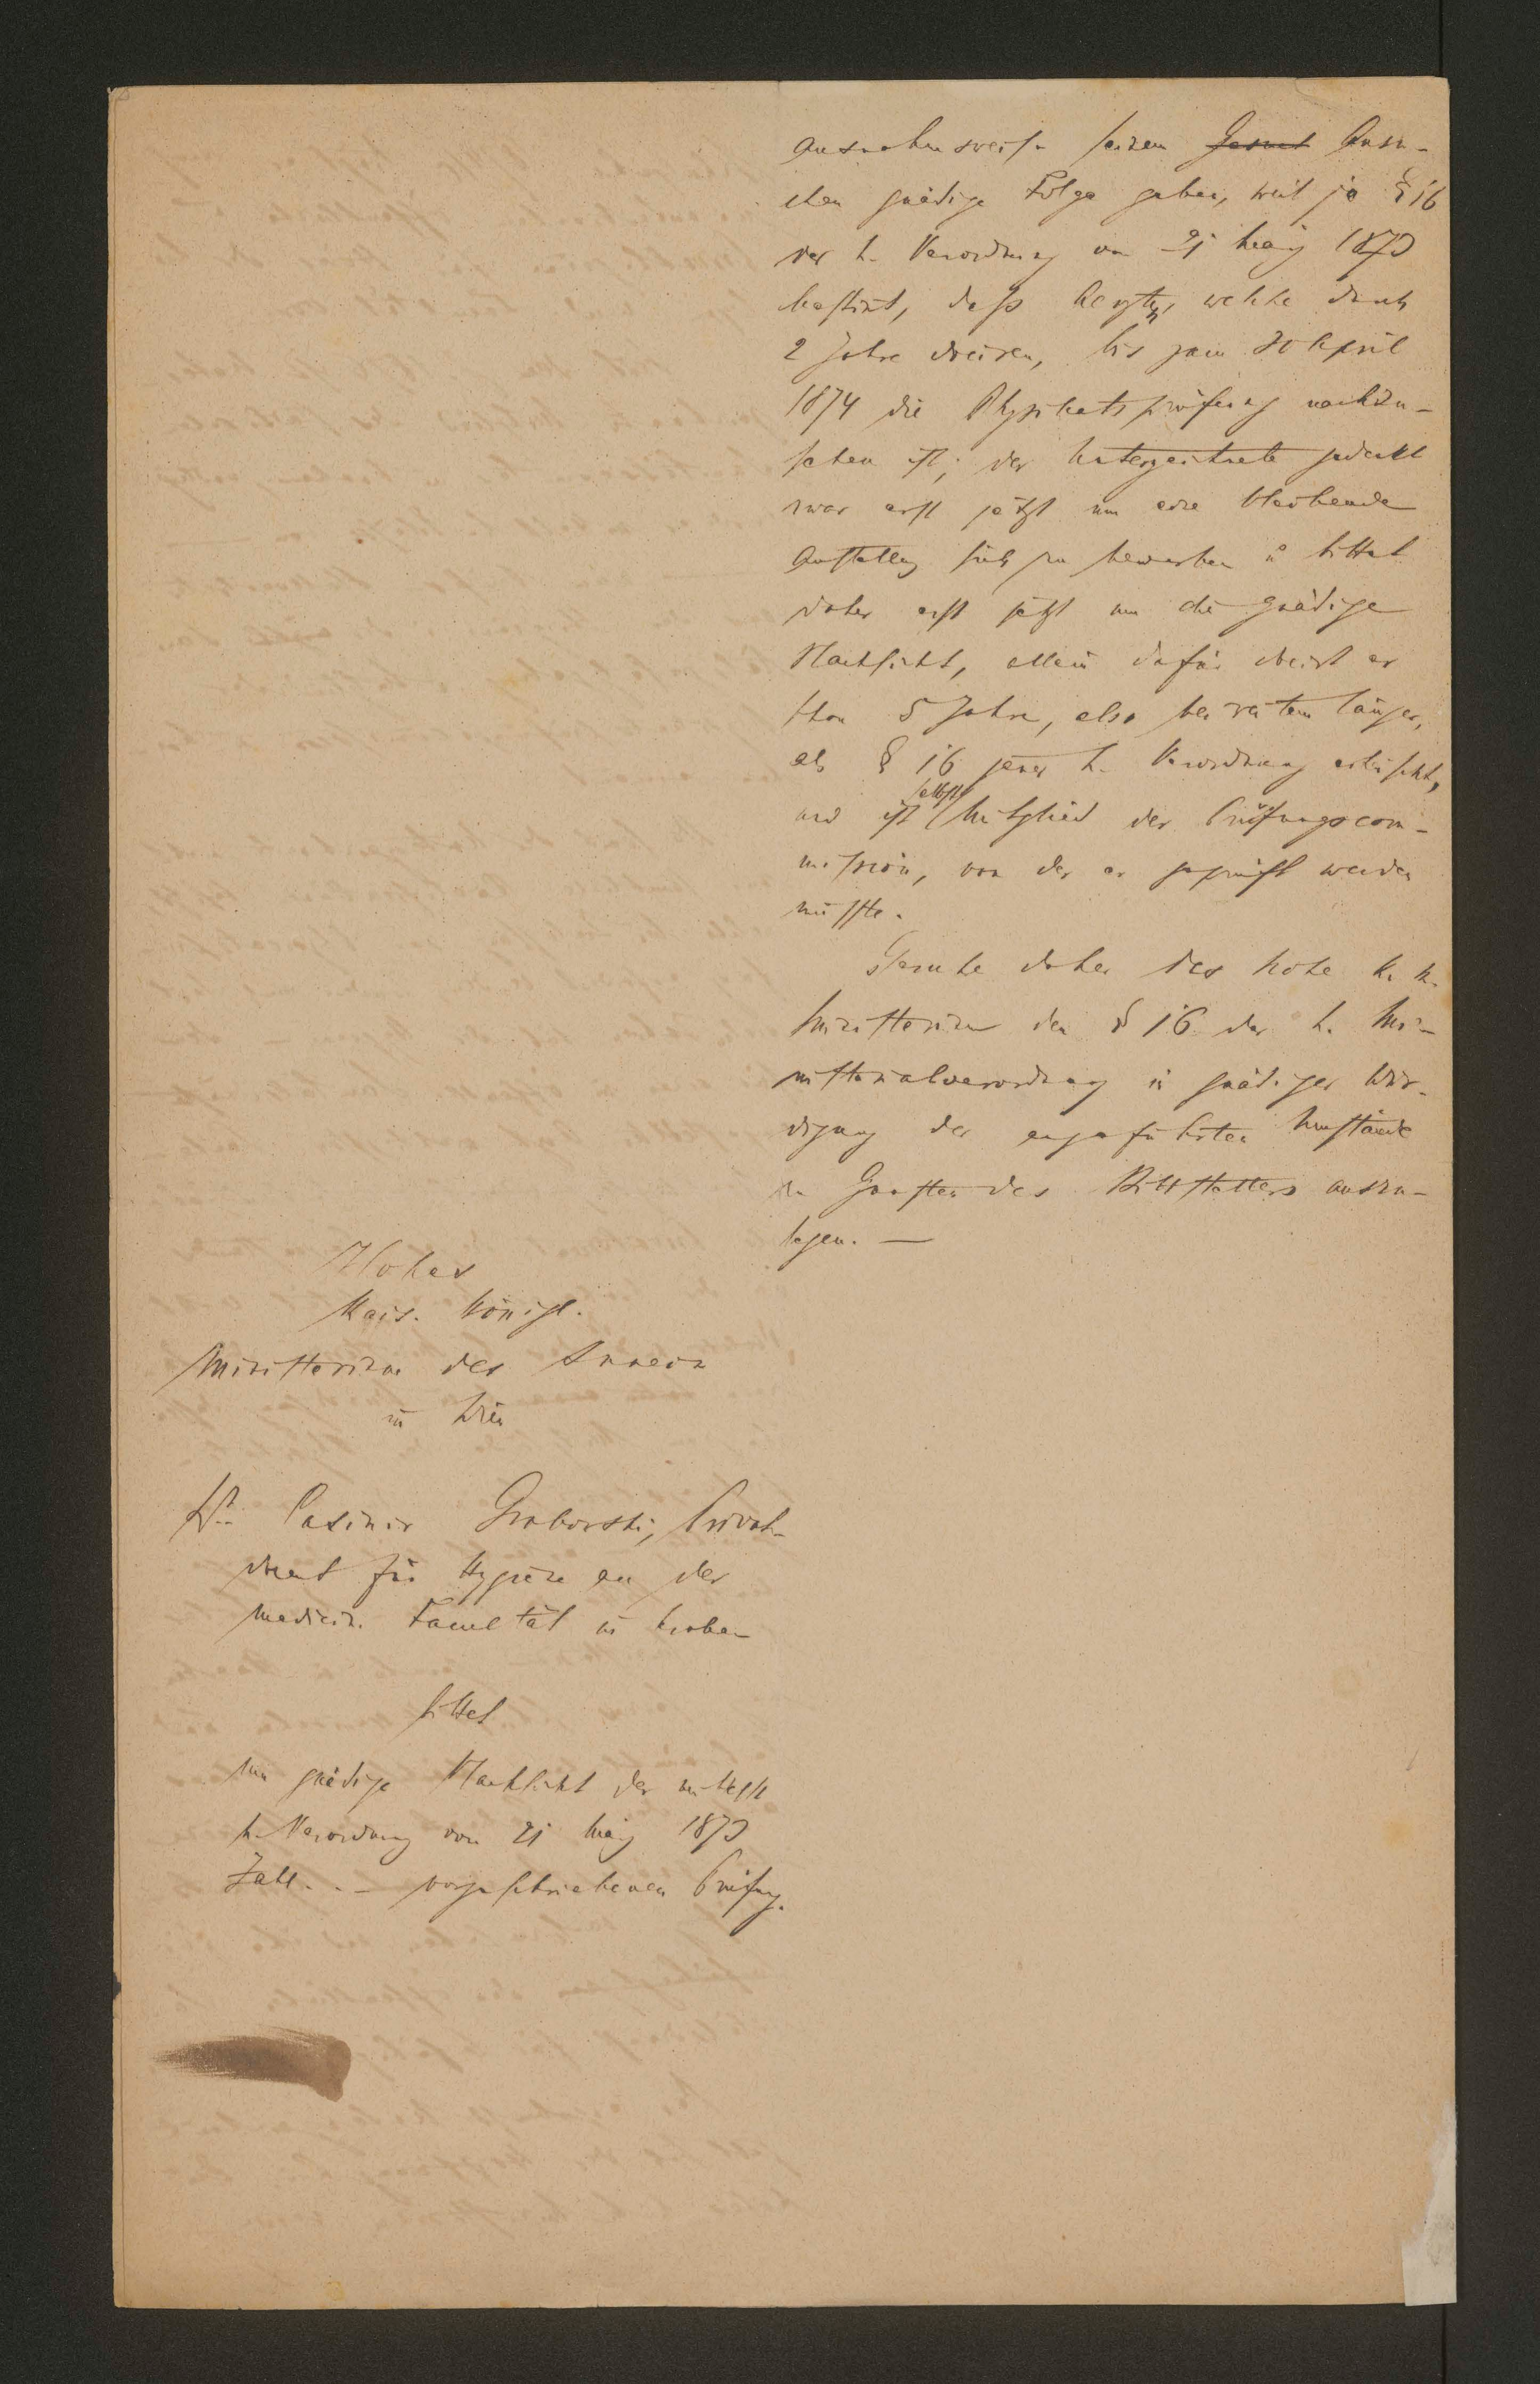 ausnahmsweise seinem Gesuch Ansu-
chen gnädige Folge geben, weil ja § 16
der h. Verordnung vom 21 März 1873
bestimt, dass Aerzten, welche durch
2 Jahre dienen, bis zum 30 April
1874 die Physikatsprüfung nachzu-
sehen ist; der Unterzeichnete gedenkt
zwar erst jetzt um eine bleibende
Anstellung sich zu bewerben u bittet
daher erst jetzt um die gnädige
Nachsicht, allein dafür dient er
schon 5 Jahre, also bei weitem länger,
als § 16 jener h. Verordnung erheischt,
und ist selbst Mitglied der Prüfungscom-
mission, von der er geprüft werden
müsste.
Geruhe daher das hohe k. k.
Ministerium den § 16 der h. Mi-
nisterialverordnung in gnädiger Wür-
digung der angeführten Umstände
zu Gunsten des Bittstellers auszu-
legen. —
Hohes
Kais. Königl.
Ministerium des Innern
in Wien
Dr. Casimir Grabowski, Privat-
docent für Hygiene an der
medicin. Facultät in Krakau
bittet
um gnädige Nachsicht der mittelst
h. Verordnung vom 21 März 1873
Zahl. . — vorgeschriebenen Prüfung.